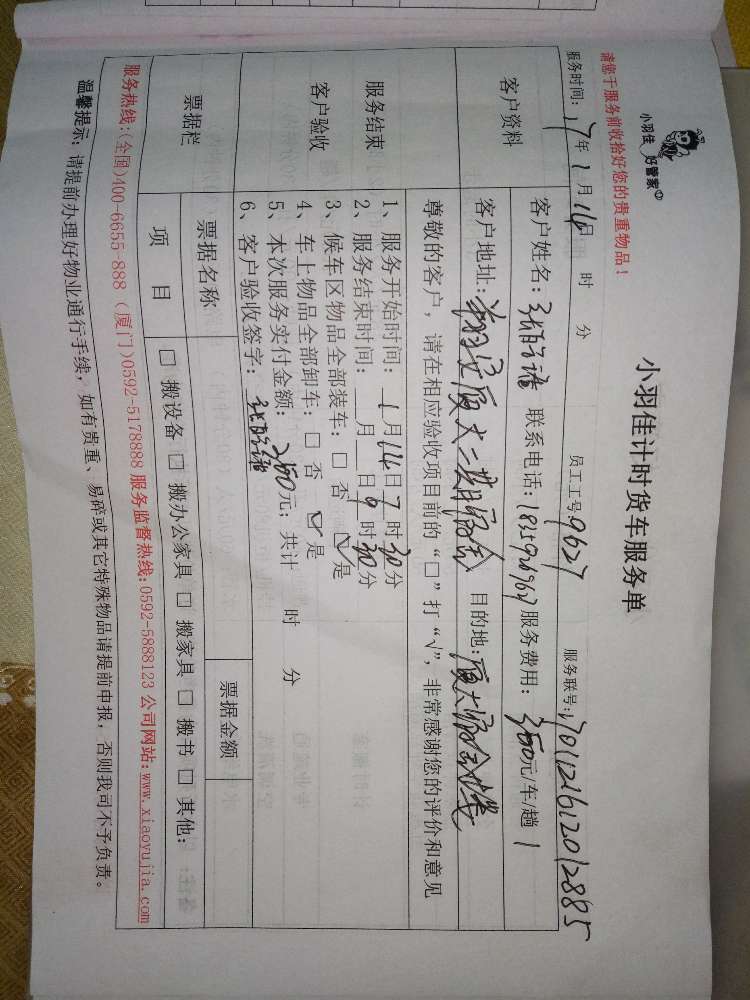 小羽佳 好管家
小羽佳计时货车服务单
请您于服务前收拾好您的贵重物品！
服务时间：17年1月14日 时 分 员工工号：9627 服务联号：1701121612012885
客户资料
客户姓名： 联系电话： 服务费用：380元/车/趟
客户地址： 目的地：
尊敬的客户，请在相应验收项目前的“□”打“√”，非常感谢您的评价和意见
服务结束
客户验收
1、服务开始时间：1月14日7时30分
2、服务结束时间： 月 日9时30分
3、候车区物品全部装车：□ 否 ☑ 是
4、车上物品全部卸车：□ 否 ☑ 是
5、本次服务实付金额：380元；共计 时 分
6、客户验收签字：
票据栏
票据名称 票据金额
项 目 □ 搬设备 □ 搬办公家具 □ 搬家具 □ 搬书 □ 其他：
服务热线：(全国)400-6655-888 (厦门)0592-5178888 服务监督热线：0592-5888123 公司网站：www.xiaoyujia.com
温馨提示：请提前办理好物业通行手续，如有贵重、易碎或其它特殊物品请提前申报，否则我司不予负责。